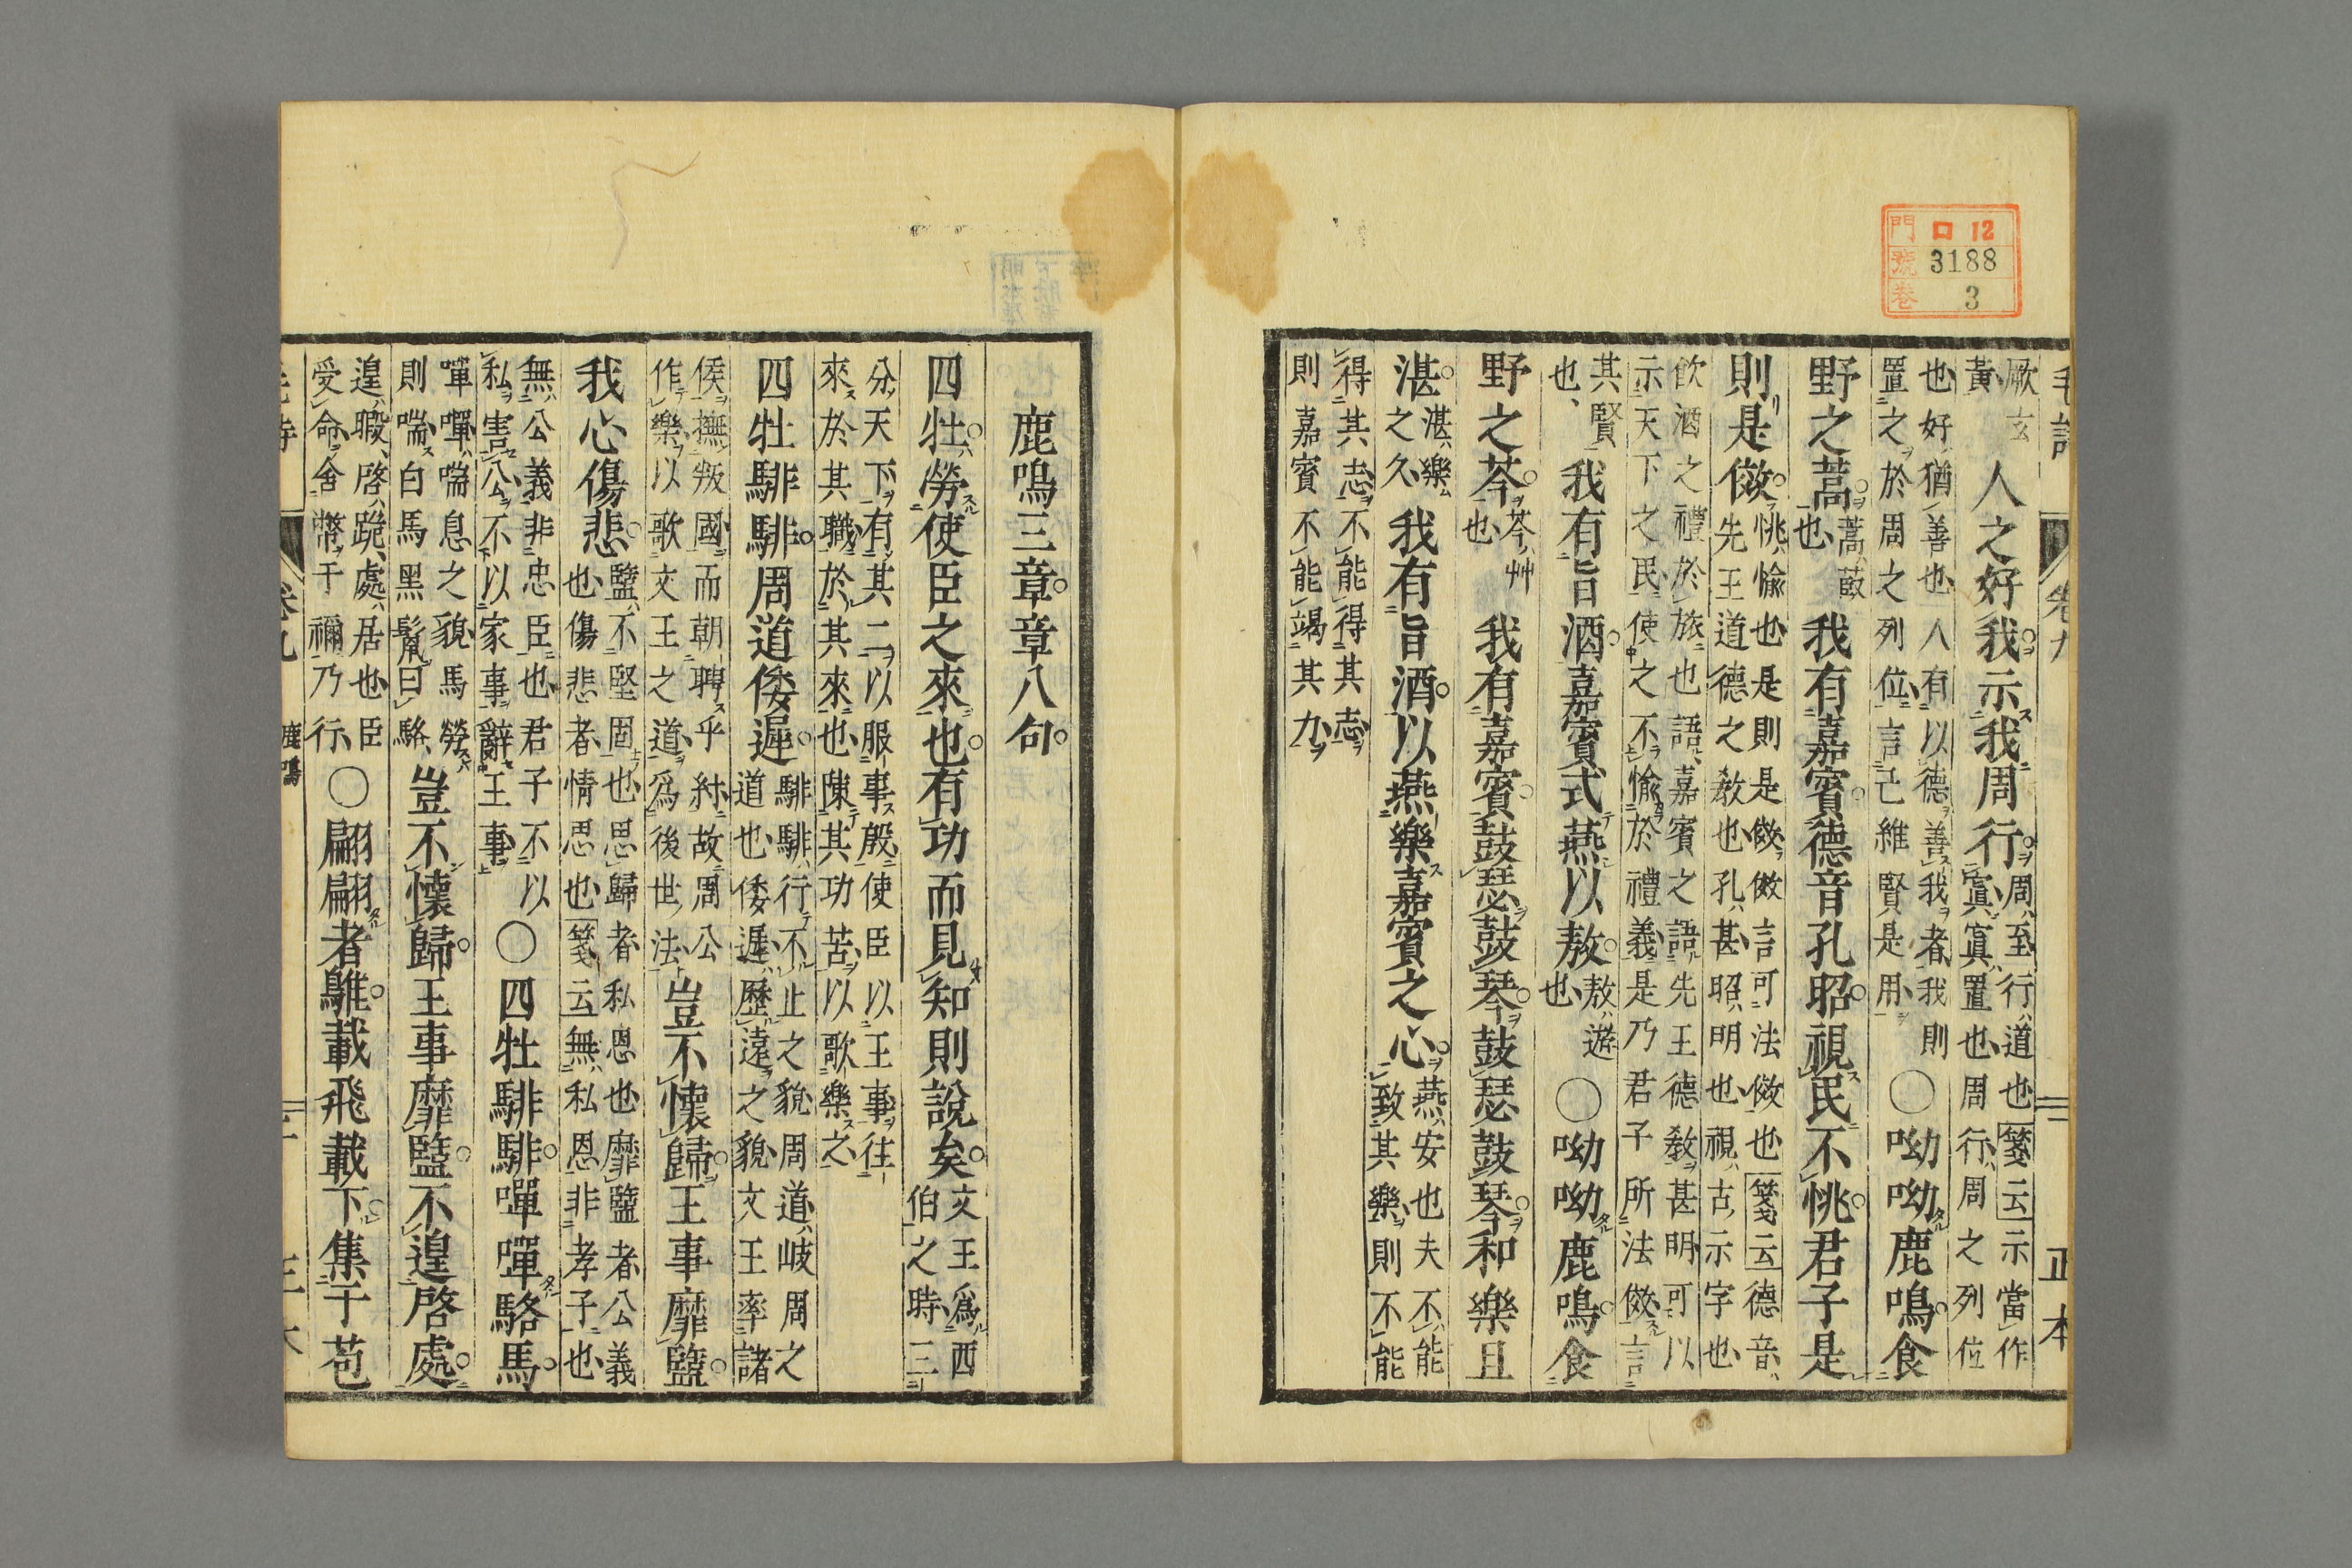 門 口 12
號 3188
巻 3
正本
厥玄
黄
人之好我示我周行
周至行道也箋云示當作
寘寘置也周行周之列位
也好猶善也人有以德善我者我則
置之於周之列位言己維賢是用
○呦呦鹿鳴食
野之蒿
蒿菣
也
我有嘉賓德音孔昭視民不恌君子是
則是傚
恌愉也是則是傚傚言可法傚也箋云德音
先王道德之教也孔甚昭明也視古示字也
飲酒之禮於旅也語嘉賓之語先王德教甚明可以
示天下之民使之不愉於禮義是乃君子所法傚言
其賢
也
我有旨酒嘉賓式燕以敖
敖遊
也
○呦呦鹿鳴食
野之芩
芩艸
也
我有嘉賓鼓瑟鼓琴鼓瑟鼓琴和樂且
湛
湛樂
之久
我有旨酒以燕樂嘉賓之心
燕安也夫不能
致其樂則不能
得其志不能得其志
則嘉賓不能竭其力
鹿鳴三章章八句
四牡勞使臣之來也有功而見知則說矣
文王爲西
伯之時三
分天下有其二以服事殷使臣以王事往
來於其職於其來也陳其功苦以歌樂之
四牡騑騑周道倭遲
騑騑行不止之貌周道岐周之
道也倭遲歷遠之貌文王率諸
侯撫叛國而朝聘乎紂故周公
作樂以歌文王之道爲後世法
豈不懷歸王事靡盬
我心傷悲
盬不堅固也思歸者私恩也靡盬者公義
也傷悲者情思也箋云無私恩非孝子也
無公義非忠臣也君子不以
私害公不以家事辭王事
○四牡騑騑嘽嘽駱馬
嘽嘽喘息之貌馬勞
則喘白馬黑鬣曰駱
豈不懷歸王事靡盬不遑啓處
遑暇啓跪處居也臣
受命舍幣于禰乃行
○翩翩者鵻載飛載下集于苞
鹿鳴